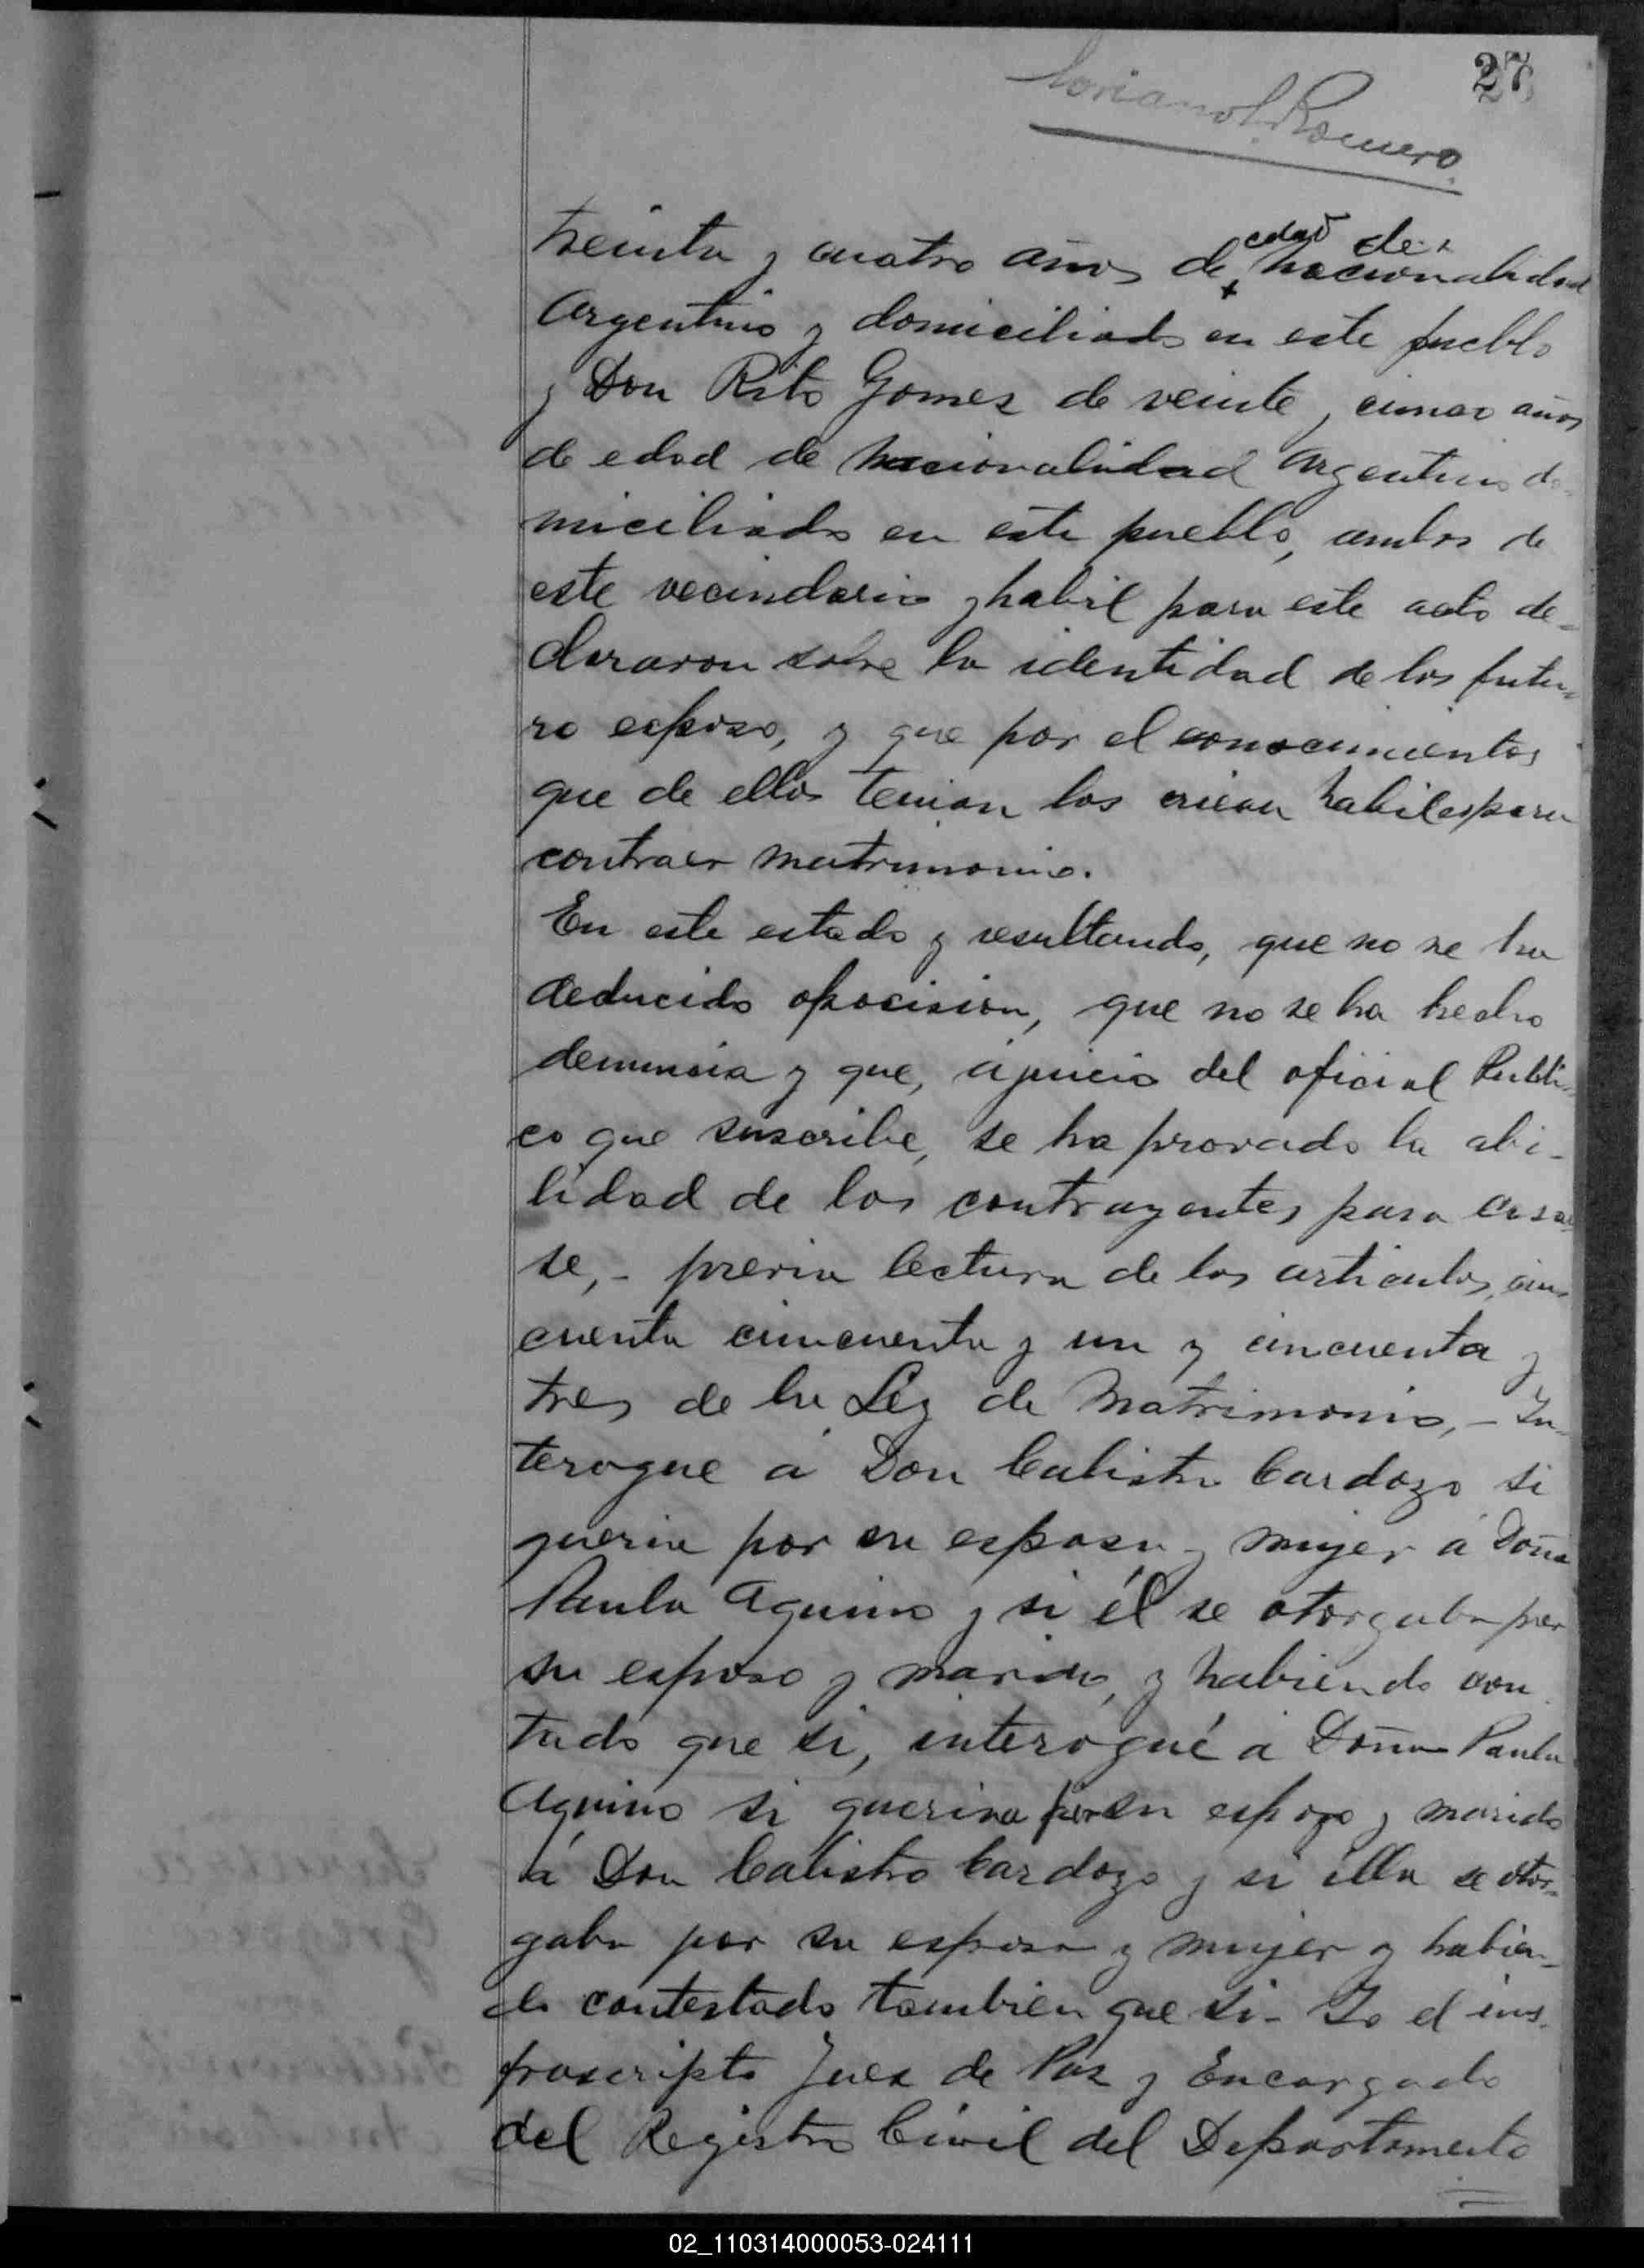 27
Soriano L. Romero.
edad de
treinta y cuatro años de + nacionalidad
Argentino y domiciliado en este pueblo
y Don Rito Gomez de veinte y cinco años
de edad de nacionalidad Argentino do-
miciliado en este pueblo, ambos de
este vecindario y habil para este acto de-
clararon sobre la identidad de los futu-
ro esposo, y que por el conocimientos
que de ellos tenian los creian habiles para
contraer matrimonio.
En este estado y resultando, que no se ha
deducido oposision, que no se ha hecho
denunsia y que, á juicio del oficial Publi-
co que suscribe, se ha provado la abi-
lidad de los contrayentes para casar
se,- previa lectura de los articulos, cin-
cuenta cincuenta y un y cincuenta y
tres de la Ley de Matrimonio,- In-
terogue á Don Calistro Cardozo si
queria por su esposa y mujer á Doña
Paula Aquino y si él se otorgaba por
su esposo y marido, y habiendo con
tado que si, interogué á Doña Paula
Aquino si queria por su espozo y marido
á Don Calistro Cardozo y si ella se otor-
gaba por su esposa y mujer y habien-
do contestado tambien que si- Yo el ins
froscripto Juez de Paz y Encargado
del Registro Civil del Departamento
02_110314000053-024111